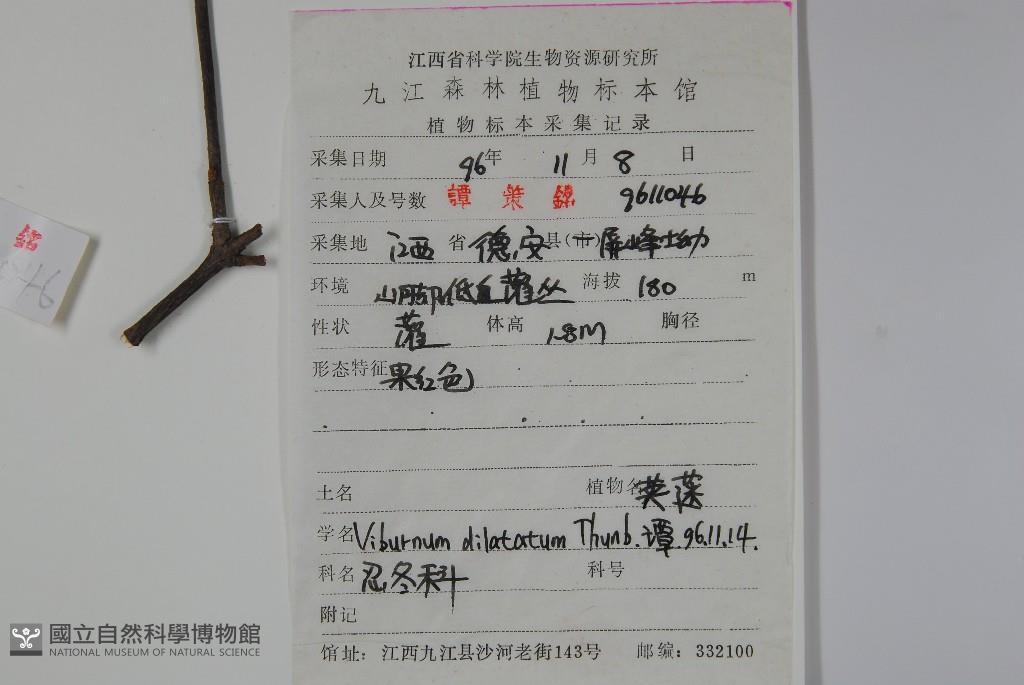 江西省科学院生物资源研究所
九江森林植物标本馆
植物标本采集记录
采集日期 96年 11月 8 日
采集人及号数 譚策銘 9611046
采集地 江西 省 德安 县(市)
环境 山脚低丘灌丛 海拔 180 m
性状 灌 体高 1.8M 胸径
形态特征 果红色
土名 植物名 荚蒾
学名 Viburnum dilatatum Thunb. 谭.96.11.14.
科名 忍冬科 科号
附记
馆址：江西九江县沙河老街143号 邮编：332100
銘
國立自然科學博物館
NATIONAL MUSEUM OF NATURAL SCIENCE